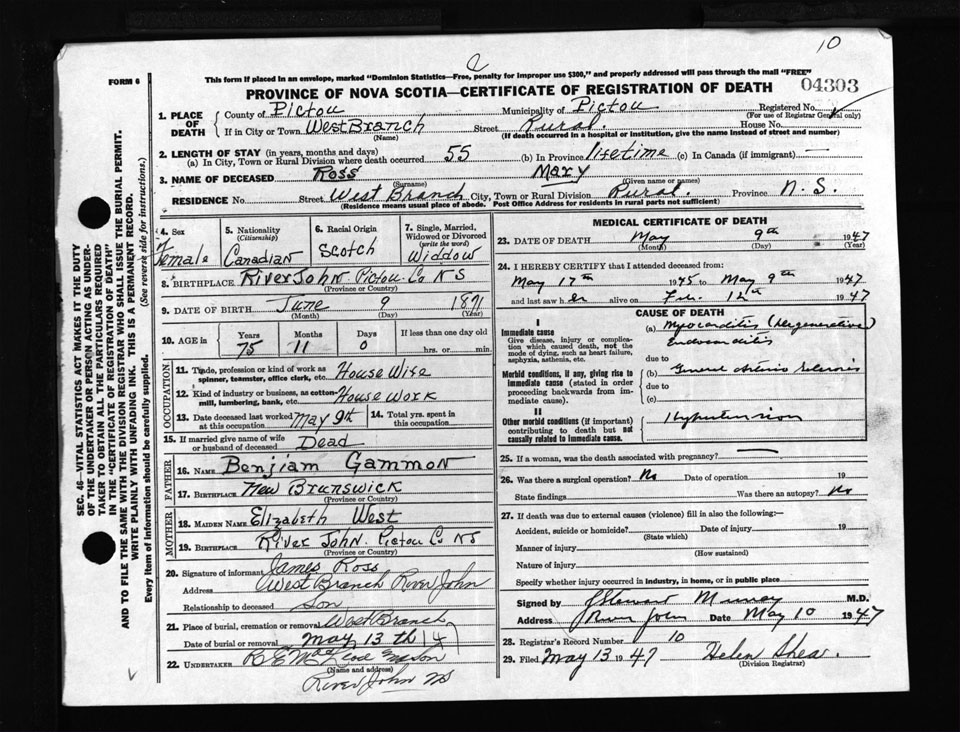 10
2
FORM 6
This form if placed in an envelope, marked "Dominion Statistics—Free, penalty for improper use $300," and properly addressed will pass through the mail "FREE"
PROVINCE OF NOVA SCOTIA—CERTIFICATE OF REGISTRATION OF DEATH
04303
1. PLACE OF DEATH
County of Pictou Municipality of Pictou Registered No.
(For use of Registrar General only)
If in City or Town West Branch Street Rural. House No.
(Name) (If death occurred in a hospital or institution, give the name instead of street and number)
2. LENGTH OF STAY (in years, months and days)
(a) In City, Town or Rural Division where death occurred 55 (b) In Province lifetime (c) In Canada (if immigrant) —
3. NAME OF DECEASED Ross Mary
(Surname) (Given name or names)
RESIDENCE No. Street West Branch City, Town or Rural Division Rural. Province N. S.
(Residence means usual place of abode. Post Office Address for residents in rural parts not sufficient)
4. Sex
Female
5. Nationality
(Citizenship)
Canadian
6. Racial Origin
Scotch
7. Single, Married, Widowed or Divorced
(write the word)
Widdow
8. BIRTHPLACE River John. Pictou Co N S
(Province or Country)
9. DATE OF BIRTH June 9 1871
(Month) (Day) (Year)
10. AGE in
Years Months Days If less than one day old
75 11 0 hrs. or min.
OCCUPATION
11. Trade, profession or kind of work as spinner, teamster, office clerk, etc. House Wife
12. Kind of industry or business, as cotton-mill, lumbering, bank, etc. House Work
13. Date deceased last worked at this occupation May 9th
14. Total yrs. spent in this occupation
15. If married give name of wife or husband of deceased Dead
FATHER
16. NAME Benjiam Gammon
17. BIRTHPLACE New Brunswick
(Province or Country)
MOTHER
18. MAIDEN NAME Elizabeth West
19. BIRTHPLACE River John. Pictou Co N S
(Province or Country)
20. Signature of informant James Ross
Address West Branch River John
Relationship to deceased son
21. Place of burial, cremation or removal West Branch
Date of burial or removal May 13 th 1947
22. UNDERTAKER
(Name and address)
River John NS
MEDICAL CERTIFICATE OF DEATH
23. DATE OF DEATH May 9th 1947
(Month) (Day) (Year)
24. I HEREBY CERTIFY that I attended deceased from
May 17th 1945 to May 9th 1947
and last saw her alive on Feb. 12th 1947
CAUSE OF DEATH
I
Immediate cause
Give disease, injury or complication which caused death, not the mode of dying, such as heart failure, asphyxia, asthenia, etc.
(a) Myocarditis (Degenerative)
Endocarditis
due to
Morbid conditions, if any, giving rise to immediate cause (stated in order proceeding backwards from immediate cause).
(b) General Arterio Sclerosis
due to
(c)
II
Other morbid conditions (if important) contributing to death but not causally related to immediate cause.
Hypertension
25. If a woman, was the death associated with pregnancy? —
26. Was there a surgical operation? No Date of operation 19
State findings Was there an autopsy? No
27. If death was due to external causes (violence) fill in also the following:—
Accident, suicide or homicide? Date of injury 19
(State which)
Manner of injury
(How sustained)
Nature of injury
Specify whether injury occurred in industry, in home, or in public place
Signed by J Stewart Murray M.D.
Address River John Date May 10 1947
28. Registrar's Record Number 10
29. Filed May 13 1947 Helen Shear.
(Division Registrar)
SEC. 46—VITAL STATISTICS ACT MAKES IT THE DUTY
OF THE UNDERTAKER OR PERSON ACTING AS UNDER-
TAKER TO OBTAIN ALL THE PARTICULARS REQUIRED
IN THE "CERTIFICATE OF REGISTRATION OF DEATH"
AND TO FILE THE SAME WITH THE DIVISION REGISTRAR WHO SHALL ISSUE THE BURIAL PERMIT.
WRITE PLAINLY WITH UNFADING INK. THIS IS A PERMANENT RECORD.
Every item of information should be carefully supplied. (See reverse side for instructions.)